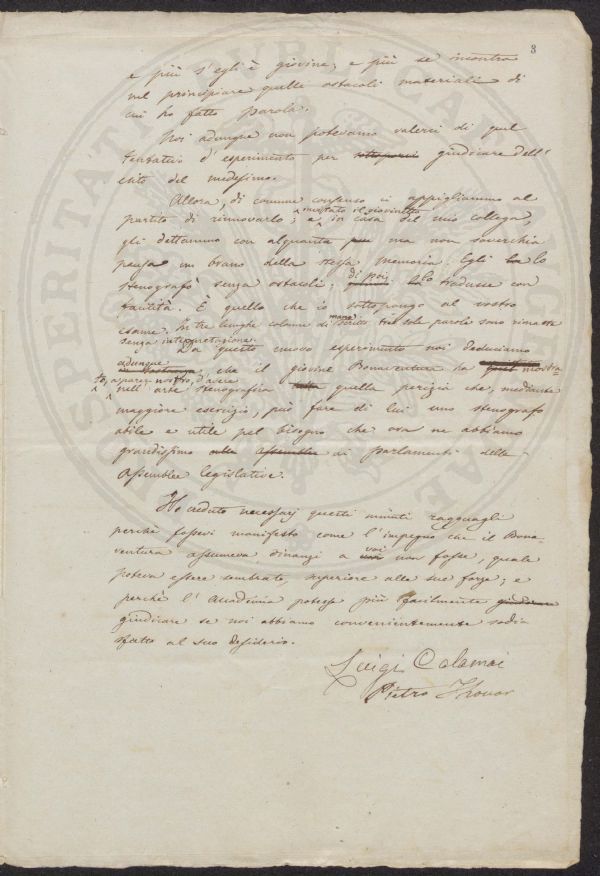 3
e più s'egli è giovine; e più se incontra
nel principiare quelli ostacoli materiali di
cui ho fatto parola.
Noi adunque non potevamo valerci di quel
tentativo d'esperimento per sottoporvi giudicare dell'
esito del medesimo.
Allora, di comune consenso ci appigliammo al
partito di rinnovarlo; e invitato il giovinetto in casa del mio collega,
gli dettammo con alquanta più ma non soverchia
pausa un brano della stessa Memoria. Egli lo
stenografò senza ostacoli; di poi lo tradusse con
facilità. È quello che io sottopongo al vostro
esame. In tre lunghe colonne di mano scritto tre sole parole sono rimaste
senza interpretazione.
Da questo nuovo esperimento noi deduciamo
adunque, che il giovine Bonaventura ha mostra
to, a parer nostro, d'avere
nell'arte stenografica quella perizia che, mediante
maggiore esercizio, può fare di lui uno stenografo
abile e utile pel bisogno che ora ne abbiamo
grandissimo nelle assemblee ai parlamenti delle
Assemblee legislative.
Ho creduto necessarj questi minuti ragguagli
perchè fossevi manifesto come l'impegno che il Bona-
ventura assumeva dinanzi a voi non fosse, quale
poteva essere sembrato, superiore alle sue forze; e
perchè l'Accademia potesse più facilmente giudicare
giudicare se noi abbiamo convenientemente sodis
fatto al suo desiderio.
Luigi Calamai
Pietro Thouar